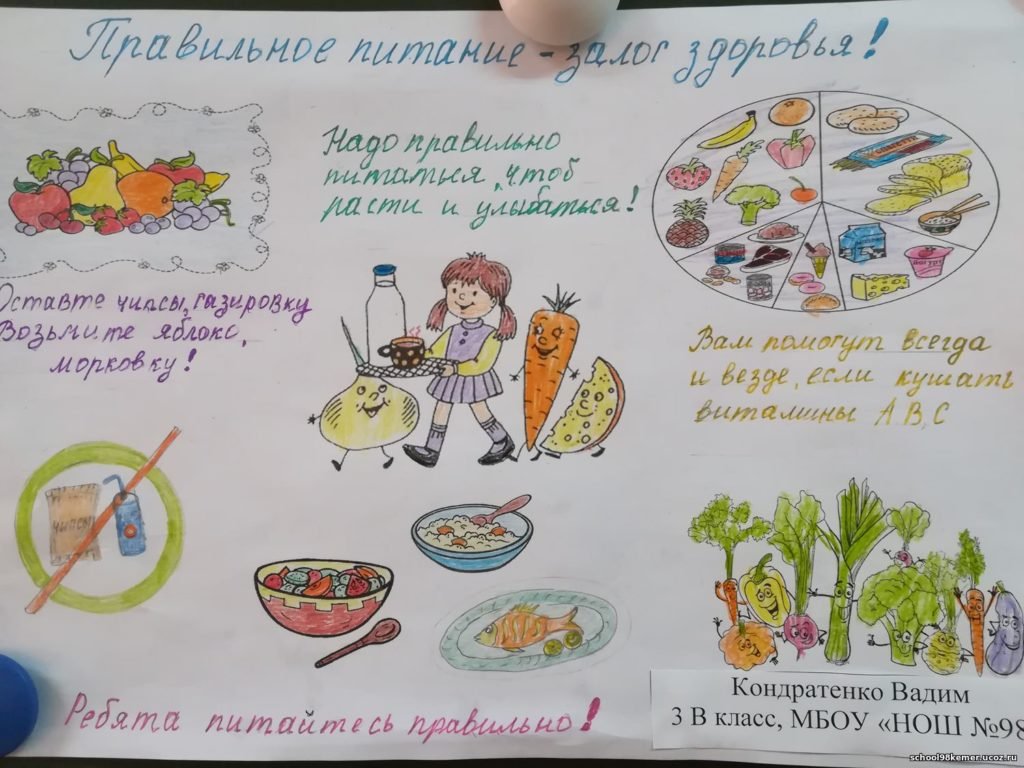 Правильное питание - залог здоровья!
Надо правильно
питаться, чтоб
расти и улыбаться!
йогурт
Оставте чипсы, газировку
Возьмите яблоко,
морковку!
Вам помогут всегда
и везде, если кушать
витамины А.В,С
чипсы
Ребята питайтесь правильно!
Кондратенко Вадим
3 В класс, МБОУ «НОШ №98
school98kemer.ucoz.ru